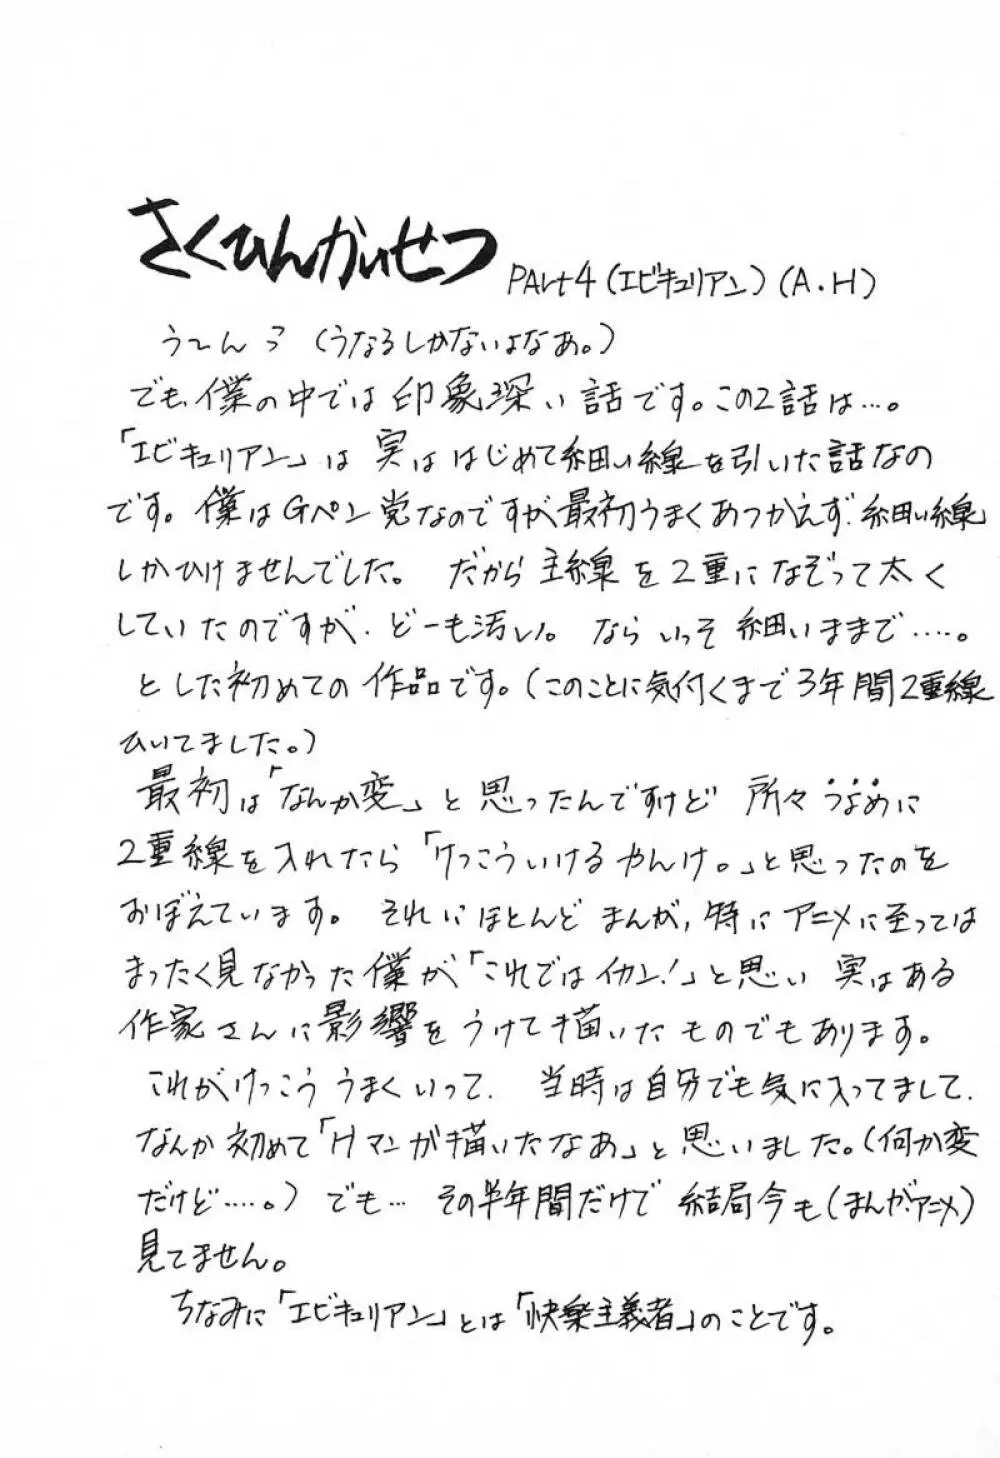 さくひんかいせつ PArt4(エピキュリアン)(A.H)
う~んっ(うなるしかないよなあ。)
でも、僕の中では印象深い話です。この2話は…。
「エピキュリアン」は実ははじめて細い線を引いた話なの
です。僕はGペン党なのですが最初うまくあつかえず、細い線
しかひけませんでした。だから主線を2重になぞって太く
していたのですが、どーも汚い。ならいっそ細いままで…‥。
とした初めての作品です。(このことに気付くまで3年間2重線
ひいてました。)
最初は「なんか変」と思ったんですけど所々うすめに
2重線を入れたら「けっこういけるやんけ。」と思ったのを
おぼえています。それにほとんどまんが、特にアニメに至っては
まったく見なかった僕が「これではイカン!」と思い実はある
作家さんに影響をうけて描いたものでもあります。
これがけっこううまくいって、当時は自分でも気に入ってまして、
なんか初めて「Hマンが描いたなあ」と思いました。(何か変
だけど…‥。)でも…その半年間だけで結局今も(まんが、アニメ)
見てません。
ちなみに「エピキュリアン」とは「快楽主義者」のことです。